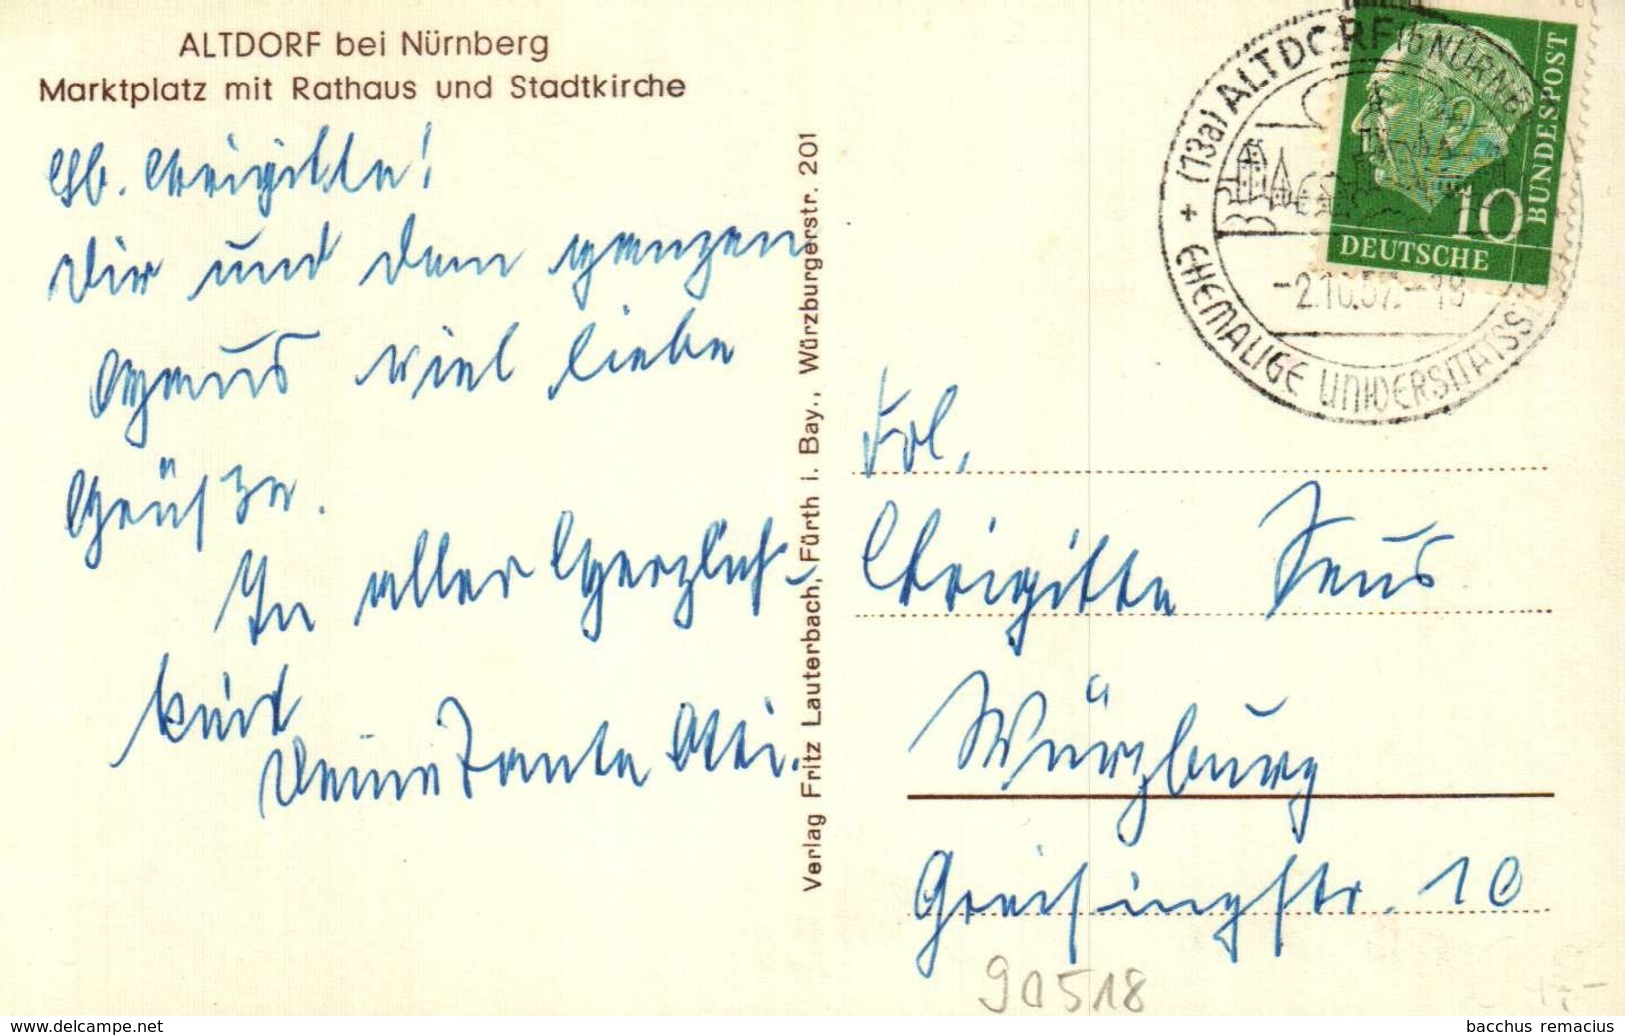 ALTDORF bei Nürnberg
Marktplatz mit Rathaus und Stadtkirche
Lb. Brigitte!
Dir und dem ganzen
Haus viel liebe
Grüsze.
In aller Herzlich-
keit
Deine Tante Otti.
Verlag Fritz Lauterbach, Fürth i. Bay., Würzburgerstr. 201
(13a) ALTDORF (b NÜRNB
+ EHEMALIGE UNIVERSITÄTSST
-2.10.57.-18
10
DEUTSCHE
BUNDESPOST
Frl.
Brigitte Seus
Würzburg
Greisingstr. 10
90518
bacchus remacius
www.delcampe.net